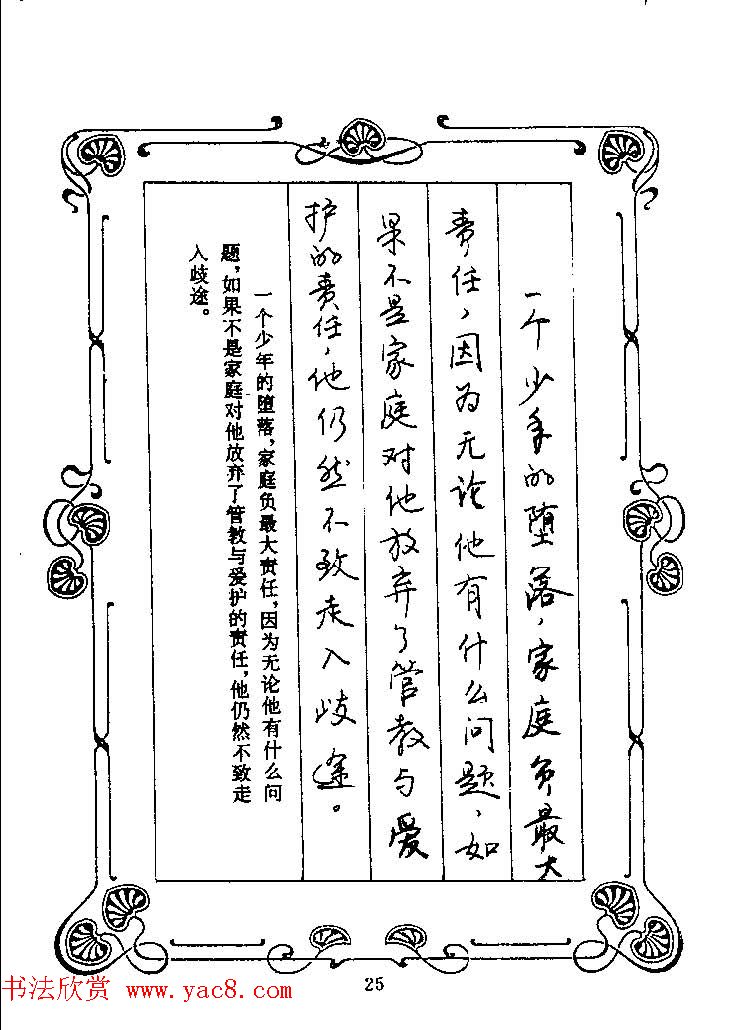 一个少年的堕落，家庭负最大
责任，因为无论他有什么问题，如
果不是家庭对他放弃了管教与爱
护的责任，他仍然不致走入歧途。
一个少年的堕落，家庭负最大责任，因为无论他有什么问
题，如果不是家庭对他放弃了管教与爱护的责任，他仍然不致走
入歧途。
25
书法欣赏 www.yac8.com